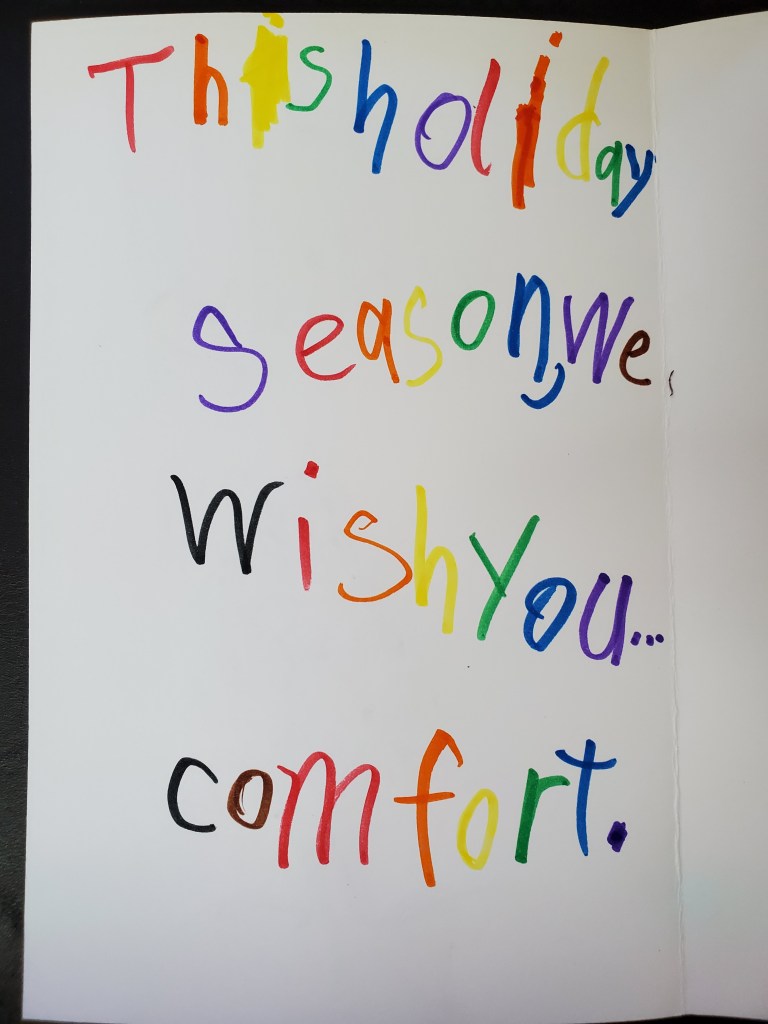 This holiday
season, we
wish you...
comfort.